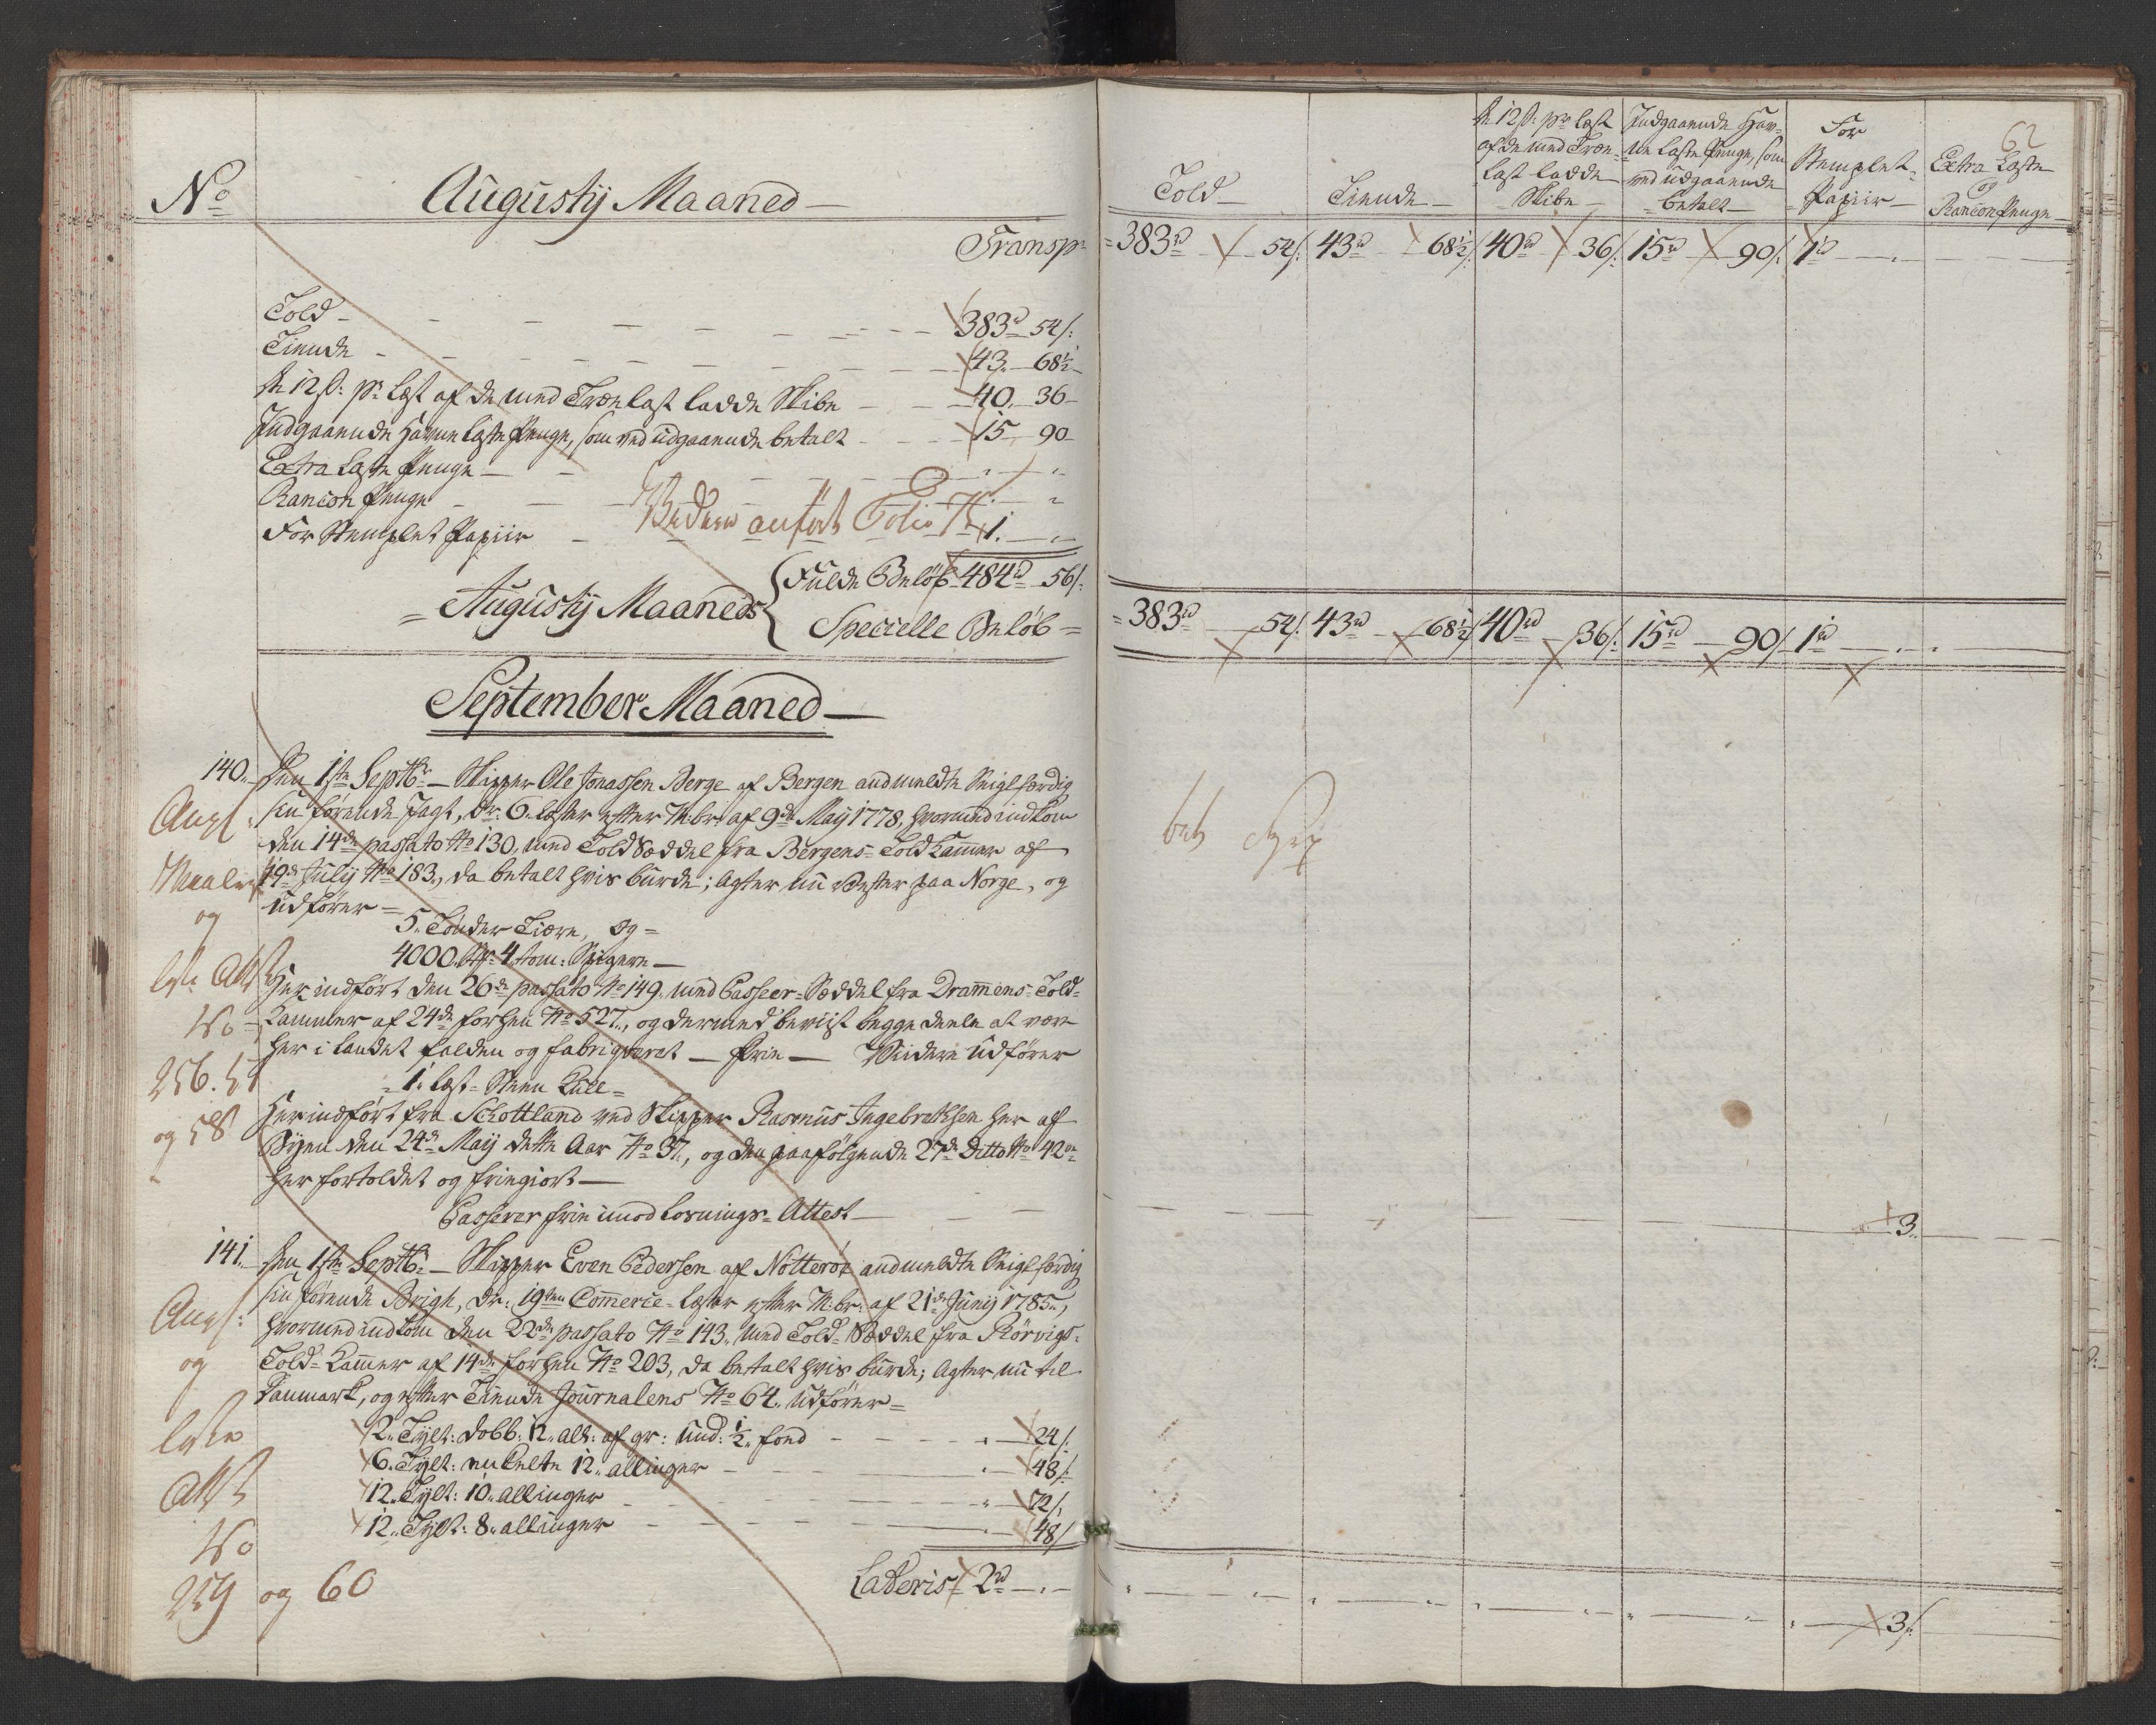 No
Augustij Maaned
Transp:
Told 383rd 54 s:
Tiende 43. 68½
De 12 s: pr. Læst af de med Trælast ladde Skibe 40. 36
Indgaaende Havne Læste Penge, som ved udgaaende betalt 15. 90
Extra Læste Penge
Rancon Penge
Bedre anført Folio
For Stemplet Papiir 1.
Augustij Maaneds
Fulde Beløb 484rd 56 s:
Specielle Beløb =
September Maaned
140. Den 1ste Septbr: Skipper Ole Jonassen Berge af Bergen andmeldte Seiglfærdig
sin førende Jagt, dr: 6. Læster efter M:br: af 9de Maij 1778, hvormed indkom
den 14de passato No 130, med Told Sæddel fra Bergens Told Kammer af
19de Julij No 183, da betalt hvis burde; Agter nu Vester paa Norge, og
udfører =
5. Tønder Tiære, og =
4000. St: 4. tom: Spigere
Her indført den 26de passato No 149. med Passeer-Sæddel fra Drammens Told-
Kammer af 24de forhen No 527., og dermed beviist begge deele at være
her i Landet falden og fabriqveret — frie — Viidere udfører
1. Læst Steen Kull =
Her indført fra Schottland ved Skipper Rasmus Ingebrethsen her af
Byen den 24de Maij dette Aar No 37., og den paafølgende 27de Ditto No 42
her fortoldet og friegiort
Passerer frie imod Losnings-Attest
Angl:
Maalebr
og
losn Att
No
256. 57
og 58
141. Den 1ste Septbr: Skipper Even Pedersen af Nøtterøe andmeldte Seiglfærdig
sin førende Brigh, dr: 19ten Commerce-Læster efter M:br: af 21de Junij 1785.,
hvormed indkom den 22de passato No 143. med Told-Sæddel fra Rörvigs-
Told-Kammer af 14de forhen No 203, da betalt hvis burde; Agter nu til
Danmark, og efter Tiende Journalens No 64. udfører =
2. Tylt: dobb: 12. al: af gr: und: ½ fod 24 s:
6. Tylt: enkelte 12. allinger 48 s:
12. Tylt: 10. allinger 72 s:
12. Tylt: 8. allinger 48 s:
Lateris 2rd
Angl:
og
losn
Att
No
259 og 60
62
Told
Tiende
De 12 s: pro Læst
af de med Træ-
last ladde
Skibe
Indgaaende Hav-
ne Læste Penge, som
ved udgaaende
betalt
For
Stemplet
Papiir
Extra Læste
og
Rancon Penge
383rd 54 s: 43rd 68½ s: 40rd 36 s: 15rd 90 s: 1rd
383rd 54 s: 43rd 68½ s: 40rd 36 s: 15rd 90 s: 1rd
3.
3 s: